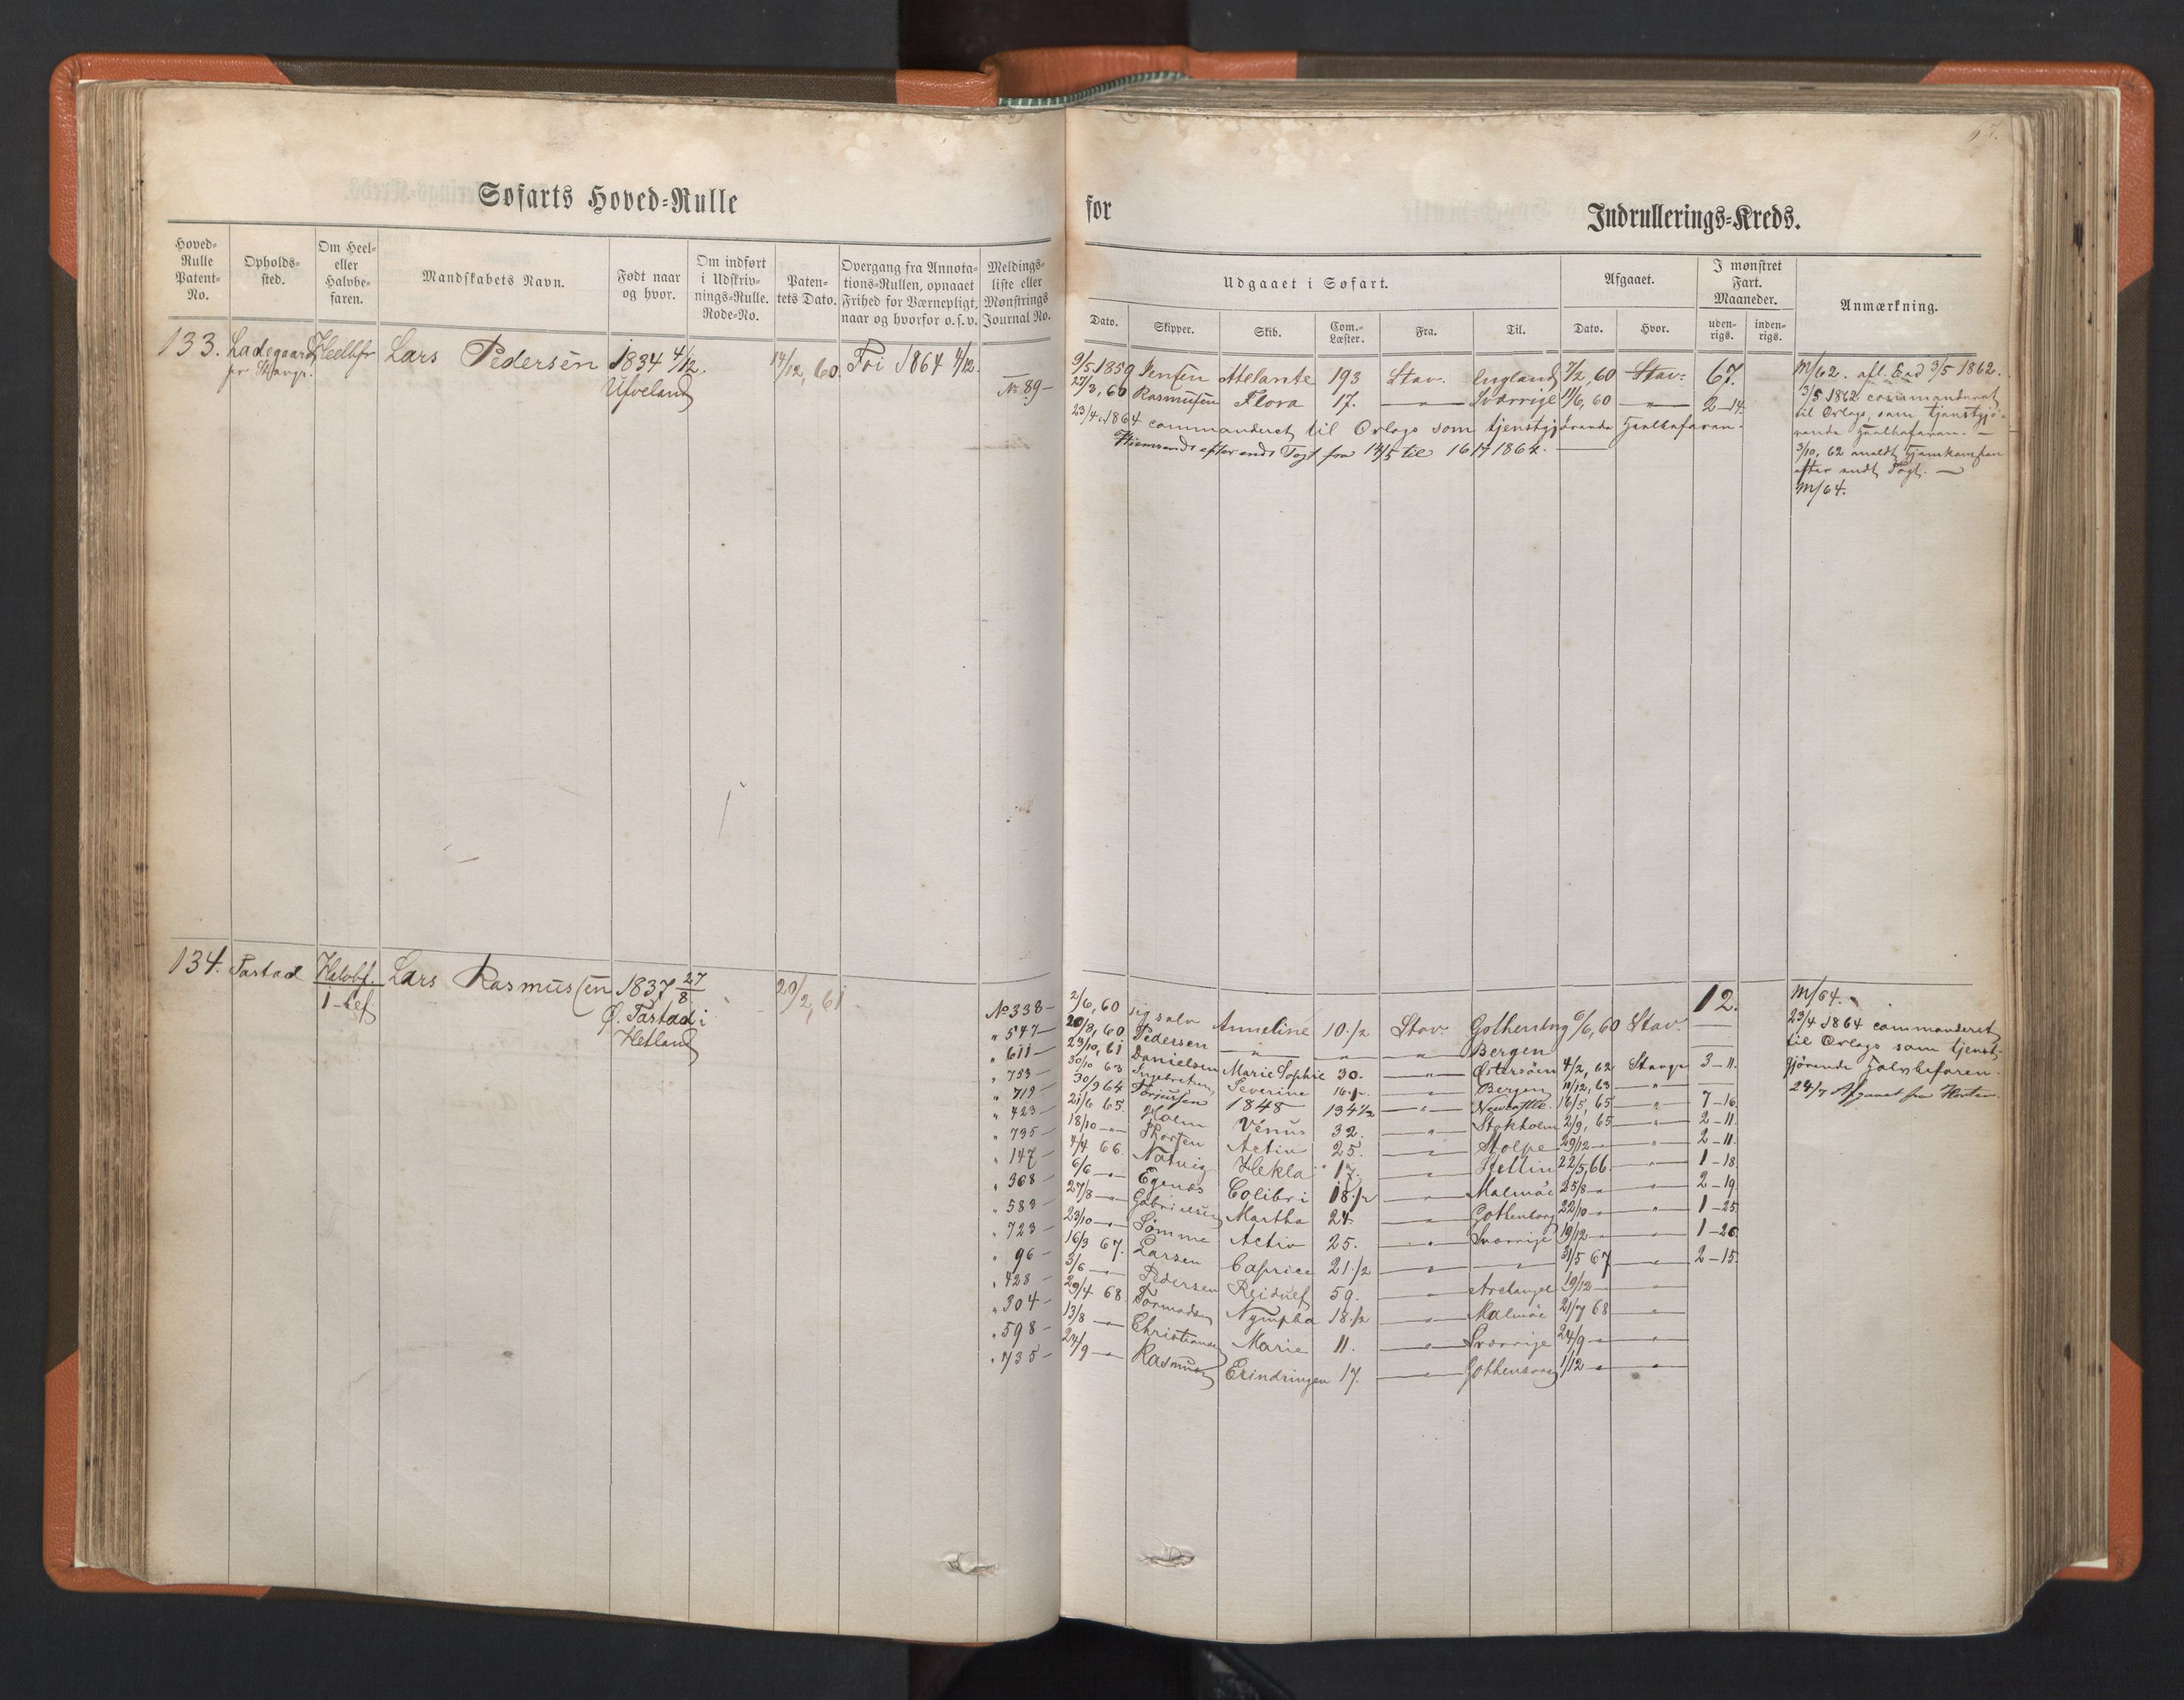 67.
Søfarts Hoved=Rulle for Indrullerings=Kreds.
Hoved=Rulle Patent=No. | Opholds=sted. | Om Heel= eller Halvbe=faren. | Mandskabets Navn. | Født naar og hvor. | Om indført i Udskriv=nings=Rulle. Rode=No. | Paten=tets Dato. | Overgang fra Annota=tions=Rullen, opnaaet Frihed for Værnepligt, naar og hvorfor o.s.v. | Meldings=liste eller Mønstrings Journal No.
Udgaaet i Søfart. | Afgaaet. | I mønstret Fart. Maaneder. | Anmærkning.
Dato. | Skipper. | Skib. | Com.=Læster. | Fra. | Til. | Dato. | Hvor. | uden=rigs. | inden=rigs.
133. Ladegaard Heelbfr Lars Pedersen 1834 4/12. 14/12, 60. Fri 1864 4/12.
pr Stavgr.
Ufveland
No 89–
9/5 1859 Jensen Atelante 193 Stav. England 7/2, 60 Stav: 67.
27/3, 60 Rasmussen Flora 17. — " — Sverrige 11/6, 60 — " — 2–14.
23/4 1864 commanderet til Orlogs som tjenstgjørende Heelbefaren.
Hjemsendt efter endt Togt fra 14/5 til 16/7 1864.
M/62. afl. Eed 3/5 1862.
3/5 1862 commanderet
til Orlogs, som tjenstgjø-
rende Heelbefaren. —
3/10, 62 meldt Hjemkomsten
efter endt Togt. —
M/64.
134. Tastad Halvbf. Lars Rasmussen 1837 27/8 20/2, 61
1–bef
Ø. Tastad i
Hetland
12.
No 338 – 2/6, 60 sig selv Anneline 10 1/2 Stav. Gothenborg 6/6, 60 Stav. —
" 547 – 20/8, 60 Pedersen — " — " — " — Bergen
" 611 – 23/10, 61 Danielsen Marie Sophie 30. — " — Østersøen 4/2, 62 Stavgr 3–11.
" 753 – 30/10 63 Ingebretsen Severine 16 1/2 — " — Bergen 11/12, 63 — " — —
" 719 – 30/9 64 Torjussen 1848 134 1/2 — " — Newcastle 16/5, 65 — " — 7–16.
" 423 – 21/6 65. Holm Venus 32. — " — Stokholm 2/9, 65 — " — 2–11.
" 735 – 18/10 — " — Thorsen Activ 25. — " — Stolpe 29/12 – " — " — 2–11.
" 147 – 4/4 66. Natvig Hekla 17. — " — Stettin 22/5, 66. — " — 1–18.
" 368 – 6/6 — " — Egenæs Colibri 18 1/2 — " — Malmøe 25/8 – " — " — 2–19
" 583 – 27/8 — " — Gabrielsen Martha 24. — " — Gothenborg 22/10 – " — " — 1–25
" 723 – 23/10 — " — Sømme Activ 25. — " — Sverrige 19/12 – " — " — 1–26.
" 96 – 16/3 67. Larsen Caprice 21 1/2 — " — — " — 31/5 67 — " — 2–15.
" 428 – 3/6 — " — Pedersen Reidulf 59. — " — Archangel 19/12 – " — " —
" 304 – 29/4 68. Tormodsen Nympha 18 1/2 — " — Malmøe 21/7 68 — " —
" 598 – 13/8 — " — Christiansen Marie 11. — " — Sverrige 24/9 – " — " —
" 735 – 24/9 — " — Rasmussen Erindringen 17. — " — Gothenborg 1/12 – " — " —
M/64.
23/4 1864 commanderet
til Orlogs som tjenst-
gjørende Halvbefaren.
24/7 Afgaaet fra Horten.